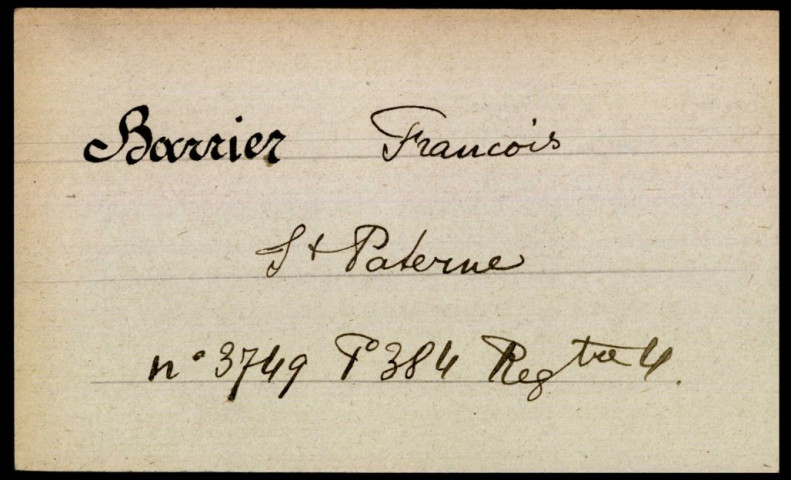 Barrier Francois
St Paterne
n° 3749 F° 384 Regtre 4.